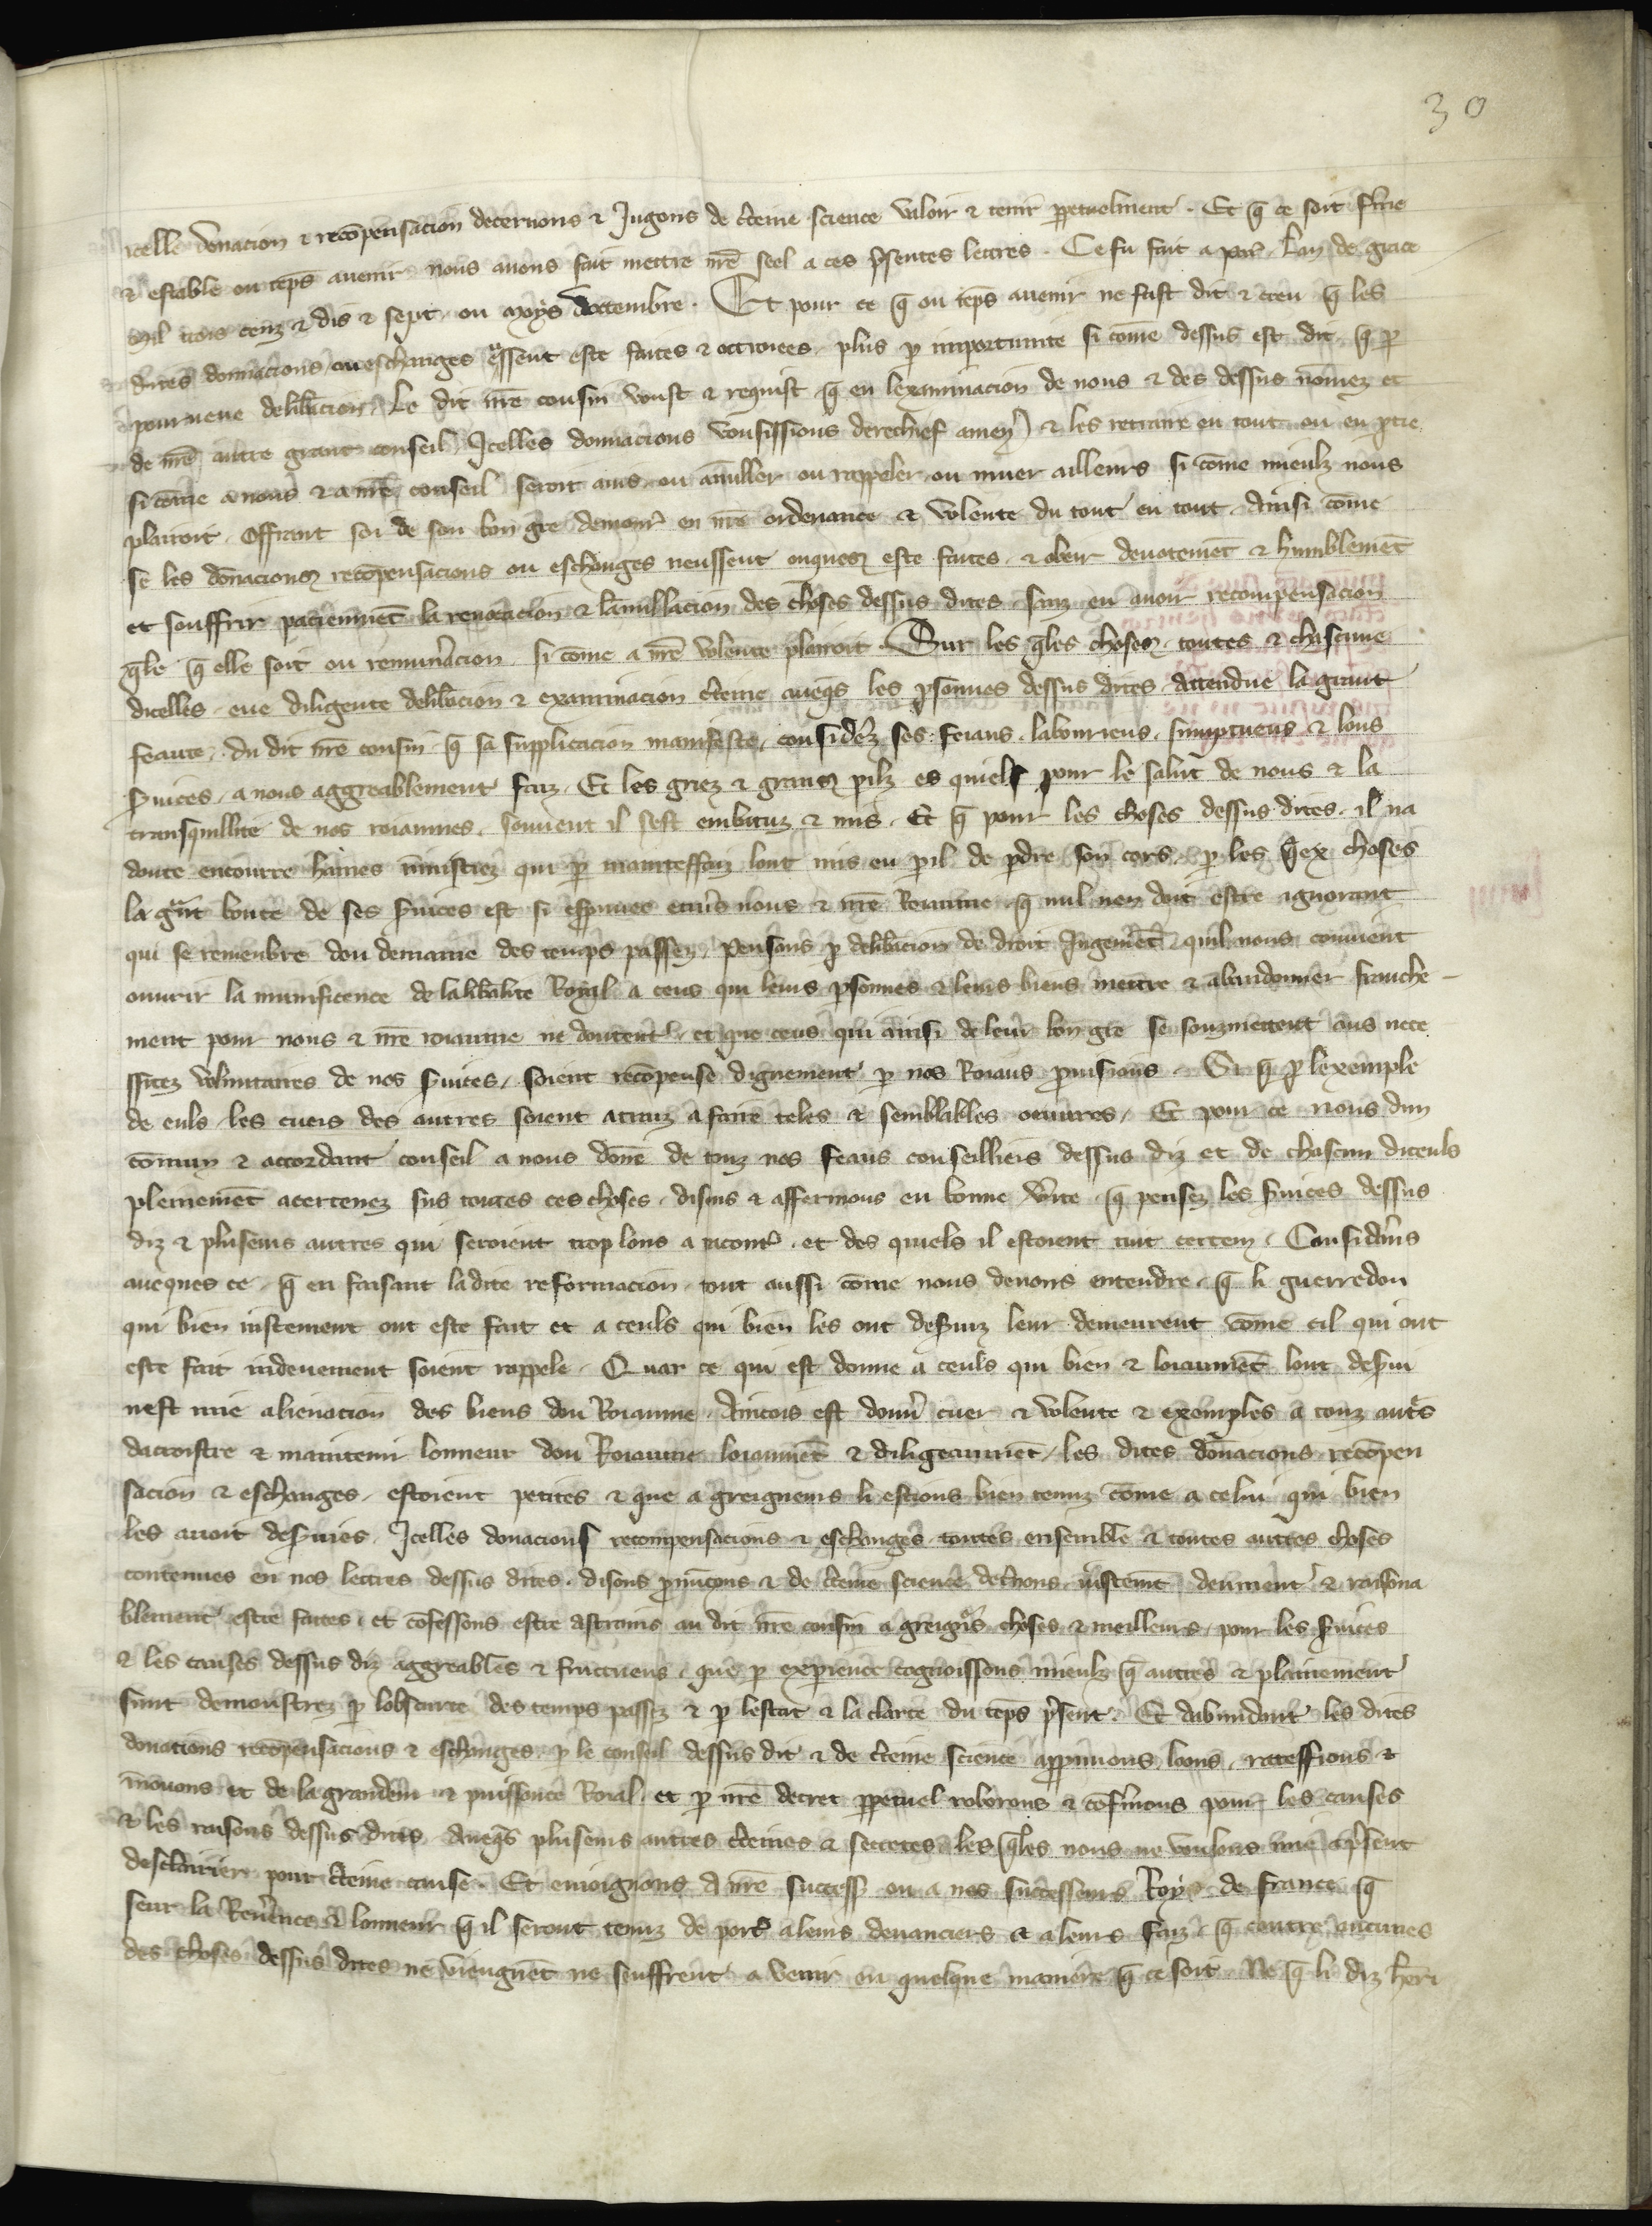 30
icelle donacion & recõpensacion decernons & Jugons de c̃teine science valoir & tenir ꝑpetuelment. Et q̃ ce soit ferme
& estable ou tẽps avenir nous avons fait mettre nr̃e seel a ces p̃sentes lettres. Ce fu fait a par̃. Lan de grace
mil trois cenz & dis & sept. ou moys doctembre. Et pour ce q̃ ou tẽps avenir ne fust dit & creu q̃ les
dites donnacions ou eschanges eussent este faites & octroiees. plus ꝑ importunite si cõme dessus est dit. q̃ ꝑ
pourveue delib̃acion. Le dit nr̃e cousin voust & requist q̃ en lexaminacion de nous & des dessus nõmez et
de nr̃e autre grant conseil. Icelles donnacions vousissions derechief amen̾ & les retraire en tout ou en ꝑtie
si cõme a nous & a nr̃e conseil seroit avis. ou anuller ou rappeler ou muer ailleurs si cõme mieulz nous
plairoit. Offrant soi de son bon gre demour̾ en nr̃e ordenance & volente du tout en tout. Ainsi cõme
se les donacions recõpensacions ou eschanges neussent onques este faites. & obeir devotemẽt & humblemẽt
et souffrir paciemmẽt la revocacion & lanullacion des choses dessus dites. sanz en avoir recompensacion
q̃le q̃ elle soit ou remun̾acion. si cõme a nr̃e volente plairoit. Sur les q̃les choses. toutes & chascune
dicelles. eue diligente delib̃acion & examinacion c̃teine aveq̃s les ꝑsonnes dessus dites. Attendue la grant
feaute. du dit nr̃e cousin. q̃ sa supplicacion manifeste. consider̾z ses feiaus. labourieus. sumptueus & lons
s̾vices. a nous aggreablement faiz. Et les griez & granz ꝑilz es quiels pour le salut de nous & la
transquillite de nos roiaumes. souvent il sest embatuz & mis. Et q̃ pour les choses dessus dites. il na
doute encourre haines
la g̃nt bonte de ses s̾vices est si esprouvee envers nous & nr̃e Roiaume. q̃ nul nen doit estre ignorant
qui se remenbre dou demaine des temps passez. Pensans ꝑ delib̃acion de droit Jugemẽt. quil nous convient
ouvrir la munificence de la lib̃alite Royal a ceus qui leurs ꝑsonnes & leurs biens mettre & abandonner franche-
ment pour nous & nr̃e roiaume ne doutent. et que ceus qui ainsi de leur bon gre se souzmettent aus nece
ssitez voluntaires de nos s̾vices. soient recõpense dignement ꝑ nos Roiaus provisions. Si q̃ ꝑ lexemple
de euls les cuers des autres soient atraiz a faire teles & semblables oeuvres. Et pour ce nous dun
cõmun & accordant conseil a nous donẽ de touz nos feaus conseilliers dessus diz et de chascun diceuls
pleinemẽt acertenez sus toutes ces choses. disons & affermons en bonne v̾ite. q̃ pensez les s̾vices dessus
diz & pluseurs autres qui seroient trop lons a racont̾. et des quiels il estoient tuit certein. Considerãs
aveques ce. q̃ en faisant ladite reformacion. tout aussi cõme nous devons entendre. q̃ li guerredon
qui bien iustement ont este fait et a ceuls qui bien les ont des̾viz leur demeurent cõme cil qui ont
este fait indeuement soient rappele. Quar ce qui est donne a ceuls qui bien & loiaumẽt lont des̾vi
nest mie alienacion des biens dou Roiaume. Aincois est donn̾ cuer & volente & exemples a touz aut̾s
dacroistre & maintenir lonneur dou Roiaume loiaumẽt & diligeaumẽt. les dites donacions recõpen
sacion & eschanges. estoient petites & que a greigneurs li estions bien tenuz cõme a celui qui bien
les avoit des̾vies. Icelles donacions recompensacions & eschanges toutes ensemble & toutes autres choses
contenues en nos lettres dessus dites. disons ꝓnũcons & de c̃teine science dec̾nons iustemẽt deument & raisona
blement estre faites. et cõfessons estre astrains au dit nr̃e cousin a greign̾s choses & meilleurs. pour les s̾vices
& les causes dessus diz aggreables & fructueus. que ꝑ experience cognoissons mieulz q̃ autres & plainement
sunt demonstrez ꝑ lobscurte des temps passez & ꝑ lestat & la clarte du tẽps p̃sent. Et dabundant les dites
donations recõpensacions & eschanges. ꝑ le conseil dessus dit & de c̃teine science approuvons loons. ratefions &
inovons et de la grandeur & puissance Roial. et ꝑ nr̃e decret ꝑpetuel roborons & cõf̾mons pour les causes
& les raisons dessus dites. Aveq̃s pluseurs autres c̃teines & secretes. les q̃les nous ne voulons mie a p̃sent
desclairier pour c̃teine cause. Et enioignons a nr̃e success̾ ou a nos successeurs Roys de france q̃
seur la Rev̾ence & lonneur q̃ il seront tenuz de port̾ a leurs devanciers & a leurs faiz. q̃ contre aucunes
des choses dessus dites ne viengnẽt ne seuffrent a venir en quelque maniere q̃ ce soit. Ne q̃ li diz Henri